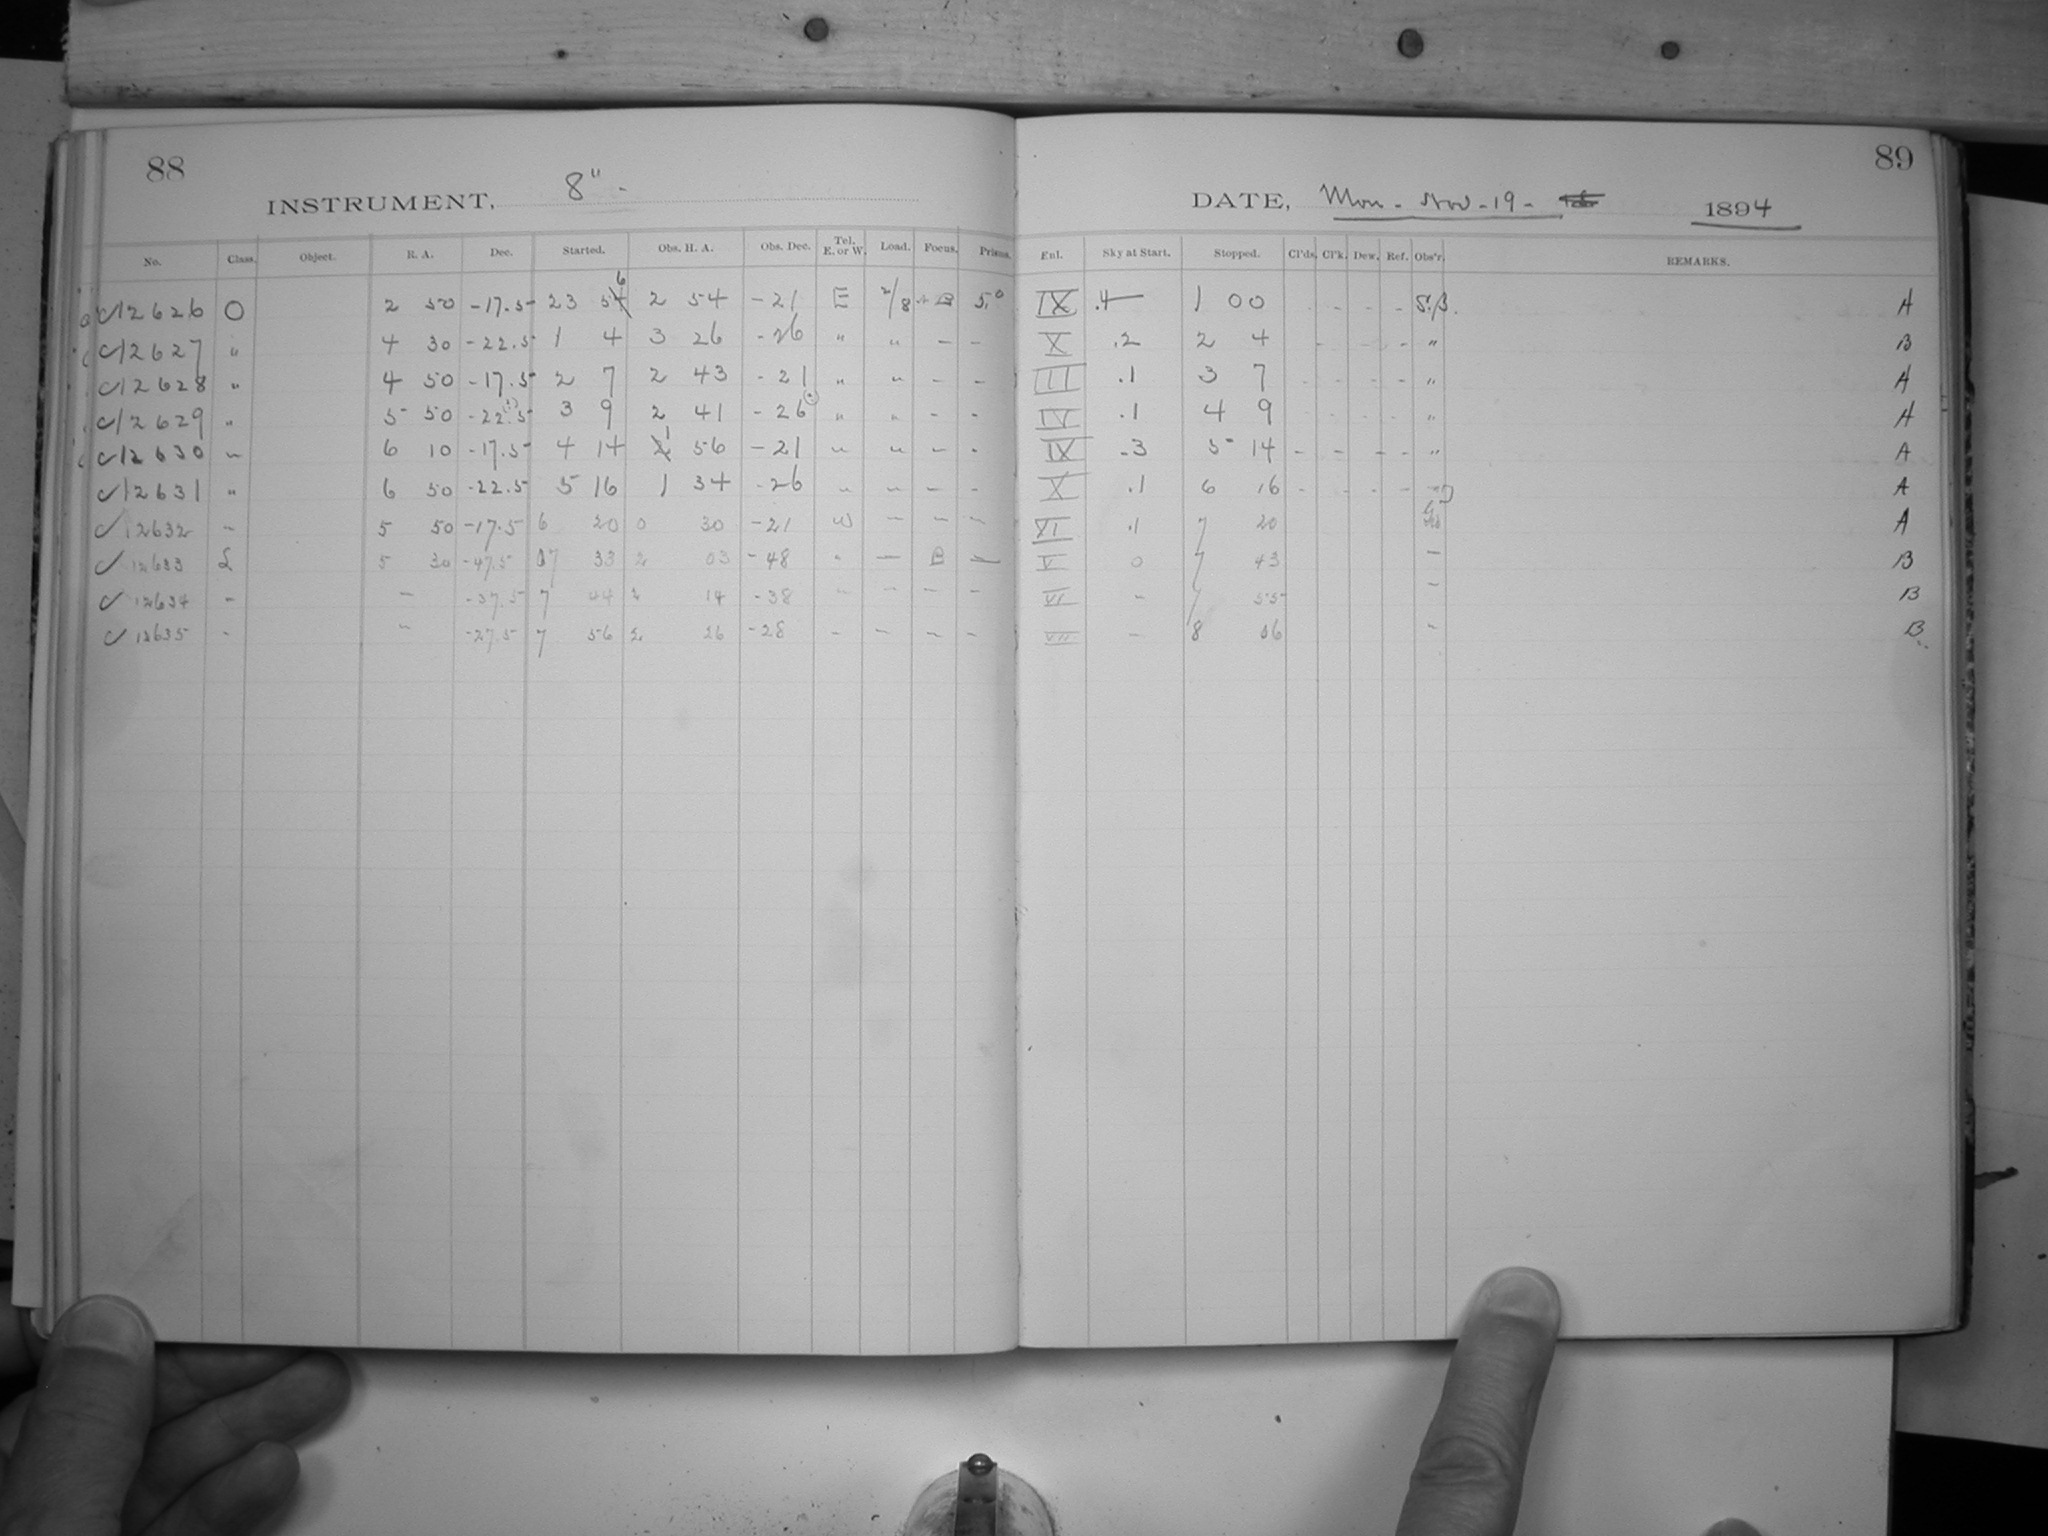 88
INSTRUMENT, 8"
No. Class. Object. R. A. Dec. Started. Obs. H. A. Obs. Dec. Tel. E. or W. Load. Focus. Prisms.
✓12626 O 2 50 -17.5 23 56 2 54 -21 E 2/8 5.0
✓12627 " 4 30 -22.5 1 4 3 26 -26 " " - -
✓12628 " 4 50 -17.5 2 7 2 43 -21 " " - -
✓12629 " 5 50 -22.5 3 9 2 41 -26 " " - -
✓12630 " 6 10 -17.5 4 14 1 56 -21 " " - -
✓12631 " 6 50 -22.5 5 16 1 34 -26 " " - -
✓12632 " 5 50 -17.5 6 20 0 30 -21 W - - -
✓12633 L 5 30 -47.5 7 33 2 03 -48 " - B -
✓12634 - - -37.5 7 44 2 14 -38 - - - -
✓12635 - " -27.5 7 56 2 26 -28 - - - -
89
DATE, Mon - Nov - 19 - 1894
Enl. Sky at Start. Stopped. Cl'ds. Cl'k. Dew. Ref. Obs'r. REMARKS.
IX .4 1 00 - - - - S.B. A
X .2 2 4 - - - - " B
III .1 3 7 - - - - " A
IV .1 4 9 - - - - " A
IX .3 5 14 - - - - " A
X .1 6 16 - - - - " A
XI .1 7 20 A
V 0 7 43 - B
VI - 7 55 - B
VII - 8 06 - B